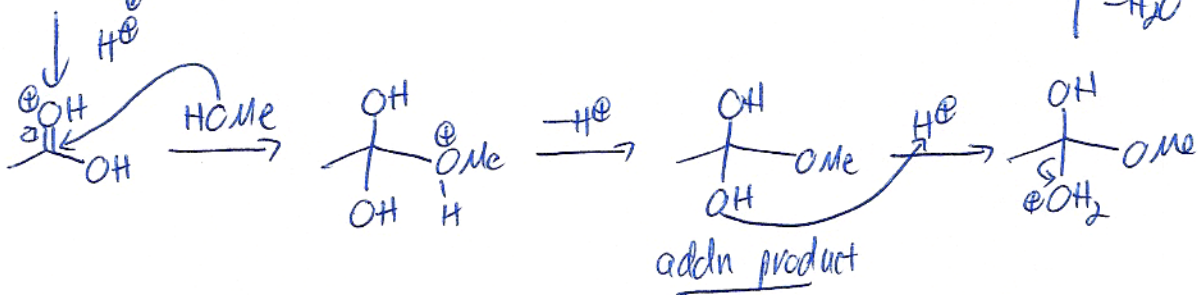 H⊕
–H₂O
⊕OH
OH
HOMe
OH
⊕
OMe
H
OH
–H⊕
OH
OMe
OH
H⊕
OH
OMe
⊕OH₂
addn product